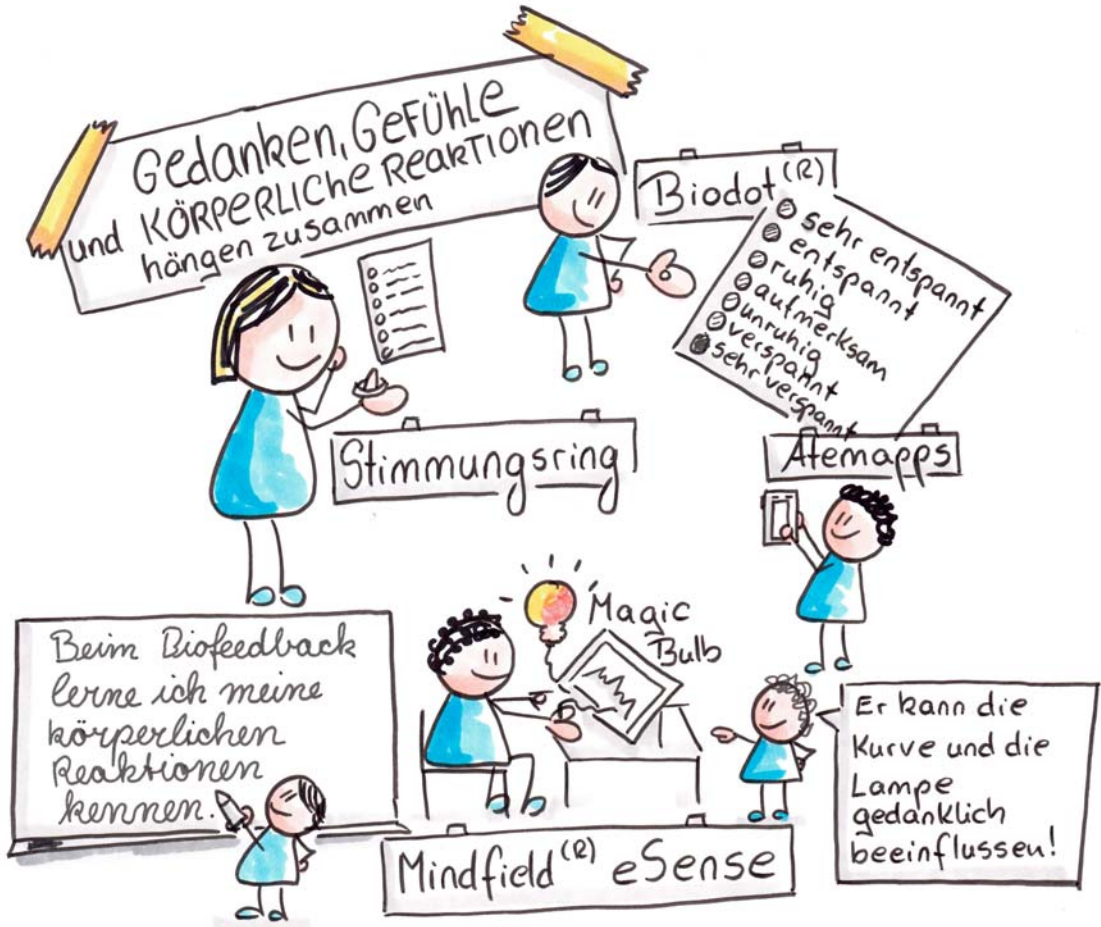 Gedanken, Gefühle
und KÖRPERLICHE Reaktionen
hängen zusammen
Biodot (R)
sehr entspannt
entspannt
ruhig
aufmerksam
unruhig
verspannt
sehr verspannt
Stimmungsring
Atemapps
Magic
Bulb
Beim Biofeedback
lerne ich meine
körperlichen
Reaktionen
kennen.
Er kann die
Kurve und die
Lampe
gedanklich
beeinflussen!
Mindfield (R) eSense